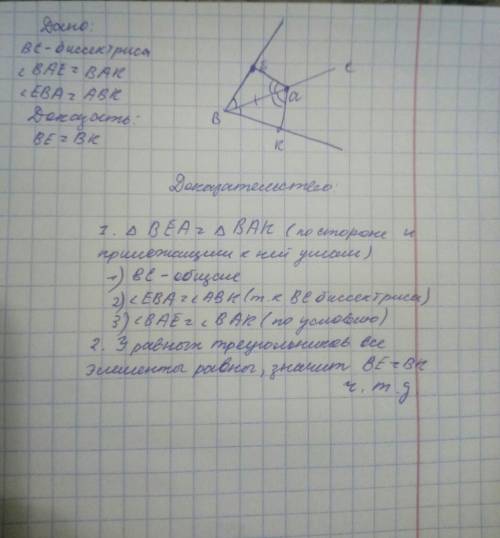 Дано:
BC - биссектриса
∠BAE = BAK
∠EBA = ABK
Доказать:
BE = BK
E
C
a
B
K
Доказательство:
1. △ BEA = △ BAK (по стороне и
прилежащим к ней углам)
1) BC - общие
2) ∠EBA = ∠ABK (т.к BC биссектриса)
3) ∠BAE = ∠BAK (по условию)
2. У равных треугольников все
элементы равны, значит BE = BK
ч.т.д